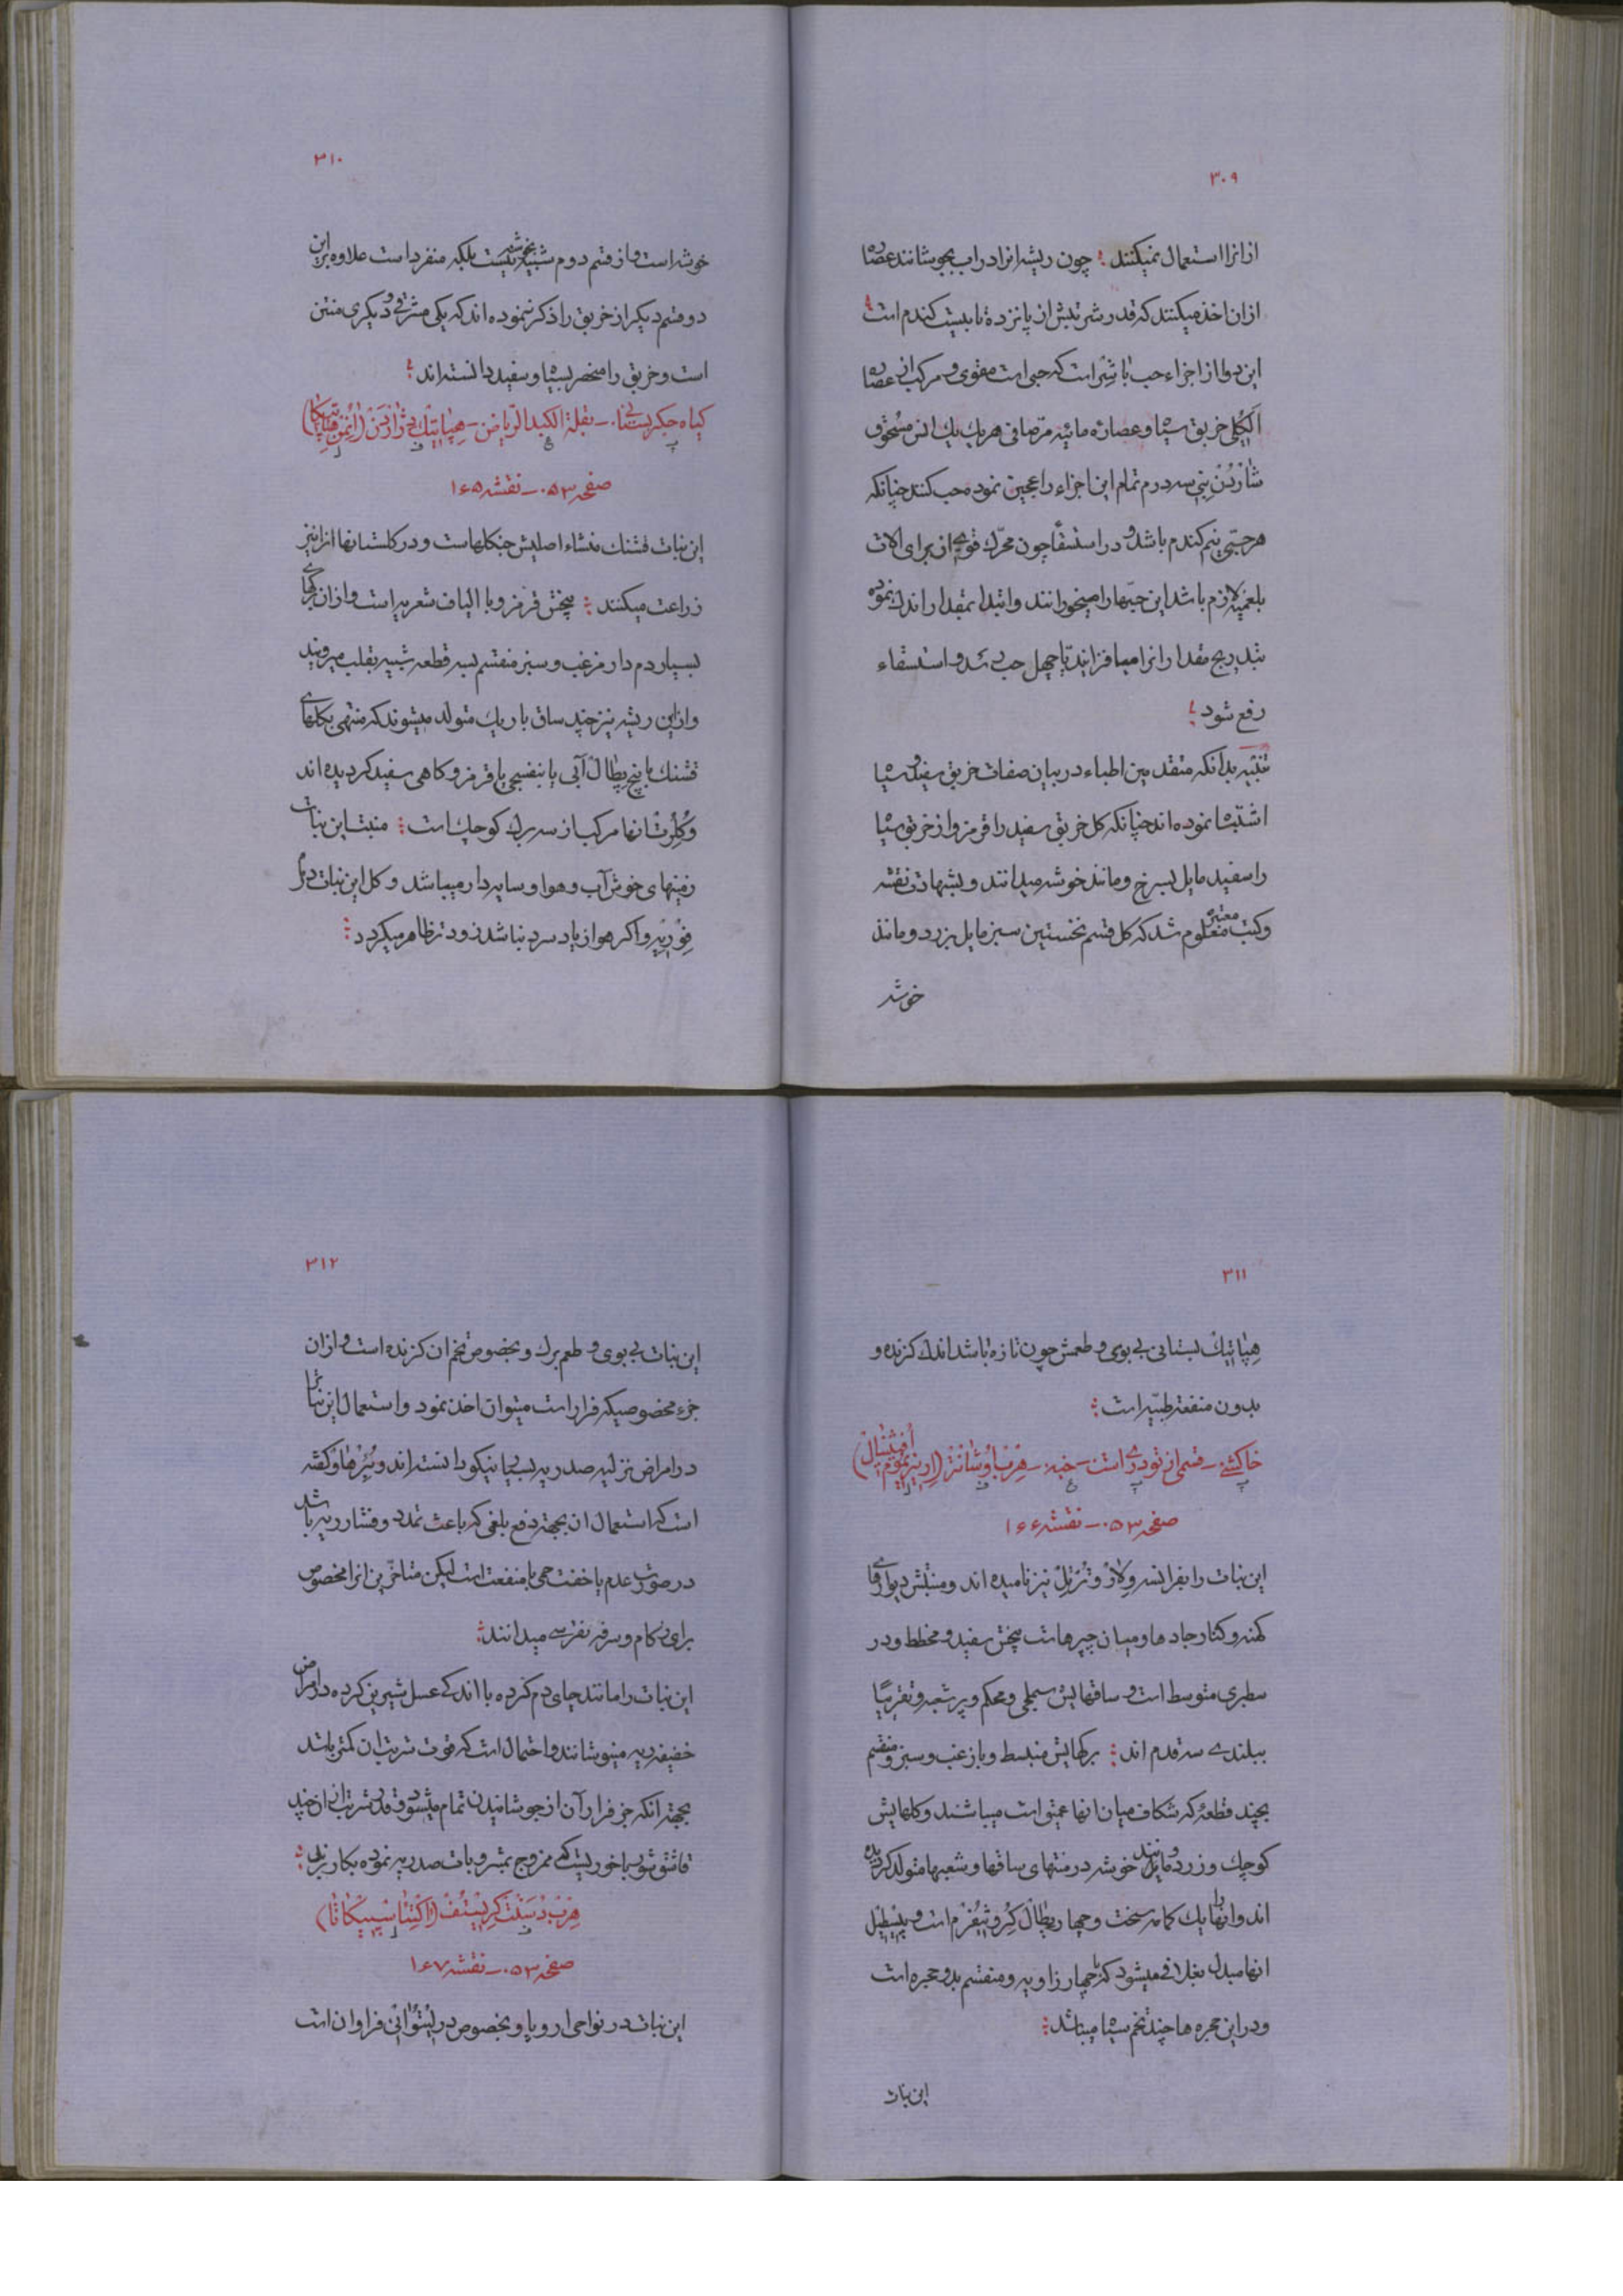 ۳۰۹
ازانرا استعمال نمیکنند چون ریشه انرا دراب بجوشانند عصاره
ازان اخذ میکنند که قدر شربتش از پانزده تا بیست کندم است
این دوا از اجزاء حب باشر است که حبی است مقوی و مرکب از عصاره
الکلی خربق سیاه و عصاره مائیه مرصافی هریك یك انس مسحوق
شاردن بنی سه درم تمام این اجزاء را عجین نموده حب کنند چنانکه
هر حبی نیم کندم باشد و در استسقا چون محرك قوی از برای الات
بلغمیه لازم باشد این حبها را میخورانند و ابتدا بمقدار اندك نموده
بتدریج مقدار انرا میافزایند تا چهل حب رسد و استسقاء
رفع شود
تنبیه بدانکه متقدمین اطباء در بیان صفات خربق سفید و سیاه
اشتباه نموده اند چنانکه کل خربق سفید را قرمز و از خربق سیاه
را سفید مایل بسرخ و مانند خوشه میدانند و بشهادت نقشه
وکتب معتبره معلوم شد که کل قسم نخستین سبز مایل بزرد و مانند
خوشه
۳۱۰
خوشه است و از قسم دوم شبیه بخوشه نیست بلکه منفرد است علاوه براین
دو قسم دیکر از خربق را ذکر نموده اند که یکی مشرقی و دیکری منتن
است و خربق را منحصر بسیاه و سفید دانسته اند
کیاه جکر بستانی - بقلة الکبد الریاض - هپاتیك دژاردن (انمن هپاتیکا)
صفحه ۰۵۳ - نقشه ۱۶۵
این نبات قشنك منشاء اصلیش جنکلهاست و در کلستانها انرا نیز
زراعت میکنند بیخش قرمز و با الیاف شعریه است و ازان برکهای
بسیار دم دار مزغب و سبز منقسم بسه قطعه شبیه بقلب میروید
و ازاین ریشه نیز چند ساق باریك متولد میشوند که منتهی بکلهای
قشنك با پنج پطال آبی یا بنفسجی یا قرمز و کاهی سفید کردیده اند
وکلرت انها مرکب از سه برك کوچك است منبت این نبات
زمینهای خوش آب و هوا و سایه دار میباشد و کل این نبات در ماه
فوریه و اکر هوا زیاد سرد نباشد زودتر ظاهر میکردد
۳۱۱
هپاتیك بستانی بی بوی و طعمش چون تازه باشد اندك کزنده و
بدون منفعت طبیه است
خاکشی - قسمی از تودری است - خبه - هرب اوشانتر (اریزیموم افیسینال)
صفحه ۰۵۳ - نقشه ۱۶۶
این نبات را بفرانسه ولار و ترتل نیز نامیده اند و منبتش دیوارهای
کهنه و کنار جادها و میان چپرهاست بیخش سفید و مخطط و در
سطبری متوسط است و ساقهایش سنبلی و محکم و پر شعبه و تقریبا
ببلندی سه قدم اند برکهایش منبسط و با زغب و سبز و منقسم
بچند قطعه که شکاف میان انها عمیق است میباشند و کلهایش
کوچك و زرد و مانند خوشه در منتهای ساقها و شعبها متولد کردیده
اند و انها را یك کمامه سخت و چهار پطال کروشیفرم است و پیستیل
انها مبدل بغلافی میشود که با چهار زاویه و منقسم بدو حجره است
و در این حجره ها چند تخم سیاه میباشد
این نبات
۳۱۲
این نبات بی بوی و طعم برك و بخصوص تخم ان کزنده است و ازان
جزء مخصوصیکه فرار است میتوان اخذ نمود و استعمال این نبات را
در امراض نزلیه صدریه بسیار نیکو دانسته اند و بئرهاو کفته
است که استعمال ان بجهت دفع بلغمی که باعث تمدد و فشار ریه باشد
در صورت عدم یا خفت حمی با منفعت است لیکن متاخرین انرا مخصوص
برای زکام و سرفه نقرسی میدانند
این نبات را مانند چای دم کرده با اندکی عسل شیرین کرده در امراض
خفیفه ریه مینوشانند و احتمال است که قوت شربت ان کمتر باشد
بجهت آنکه جزء فرار آن از جوشانیدن تمام میشود و قدر شربت ان از چند
قاشق سوپ خوریست که ممزوج بمشروبات صدریه نموده بکار برند
هرب دسنت کریستف (اکتئا سپیکاتا)
صفحه ۰۵۳ - نقشه ۱۶۷
این نبات در نواحی اروپا و بخصوص در لیتوانی فراوان است